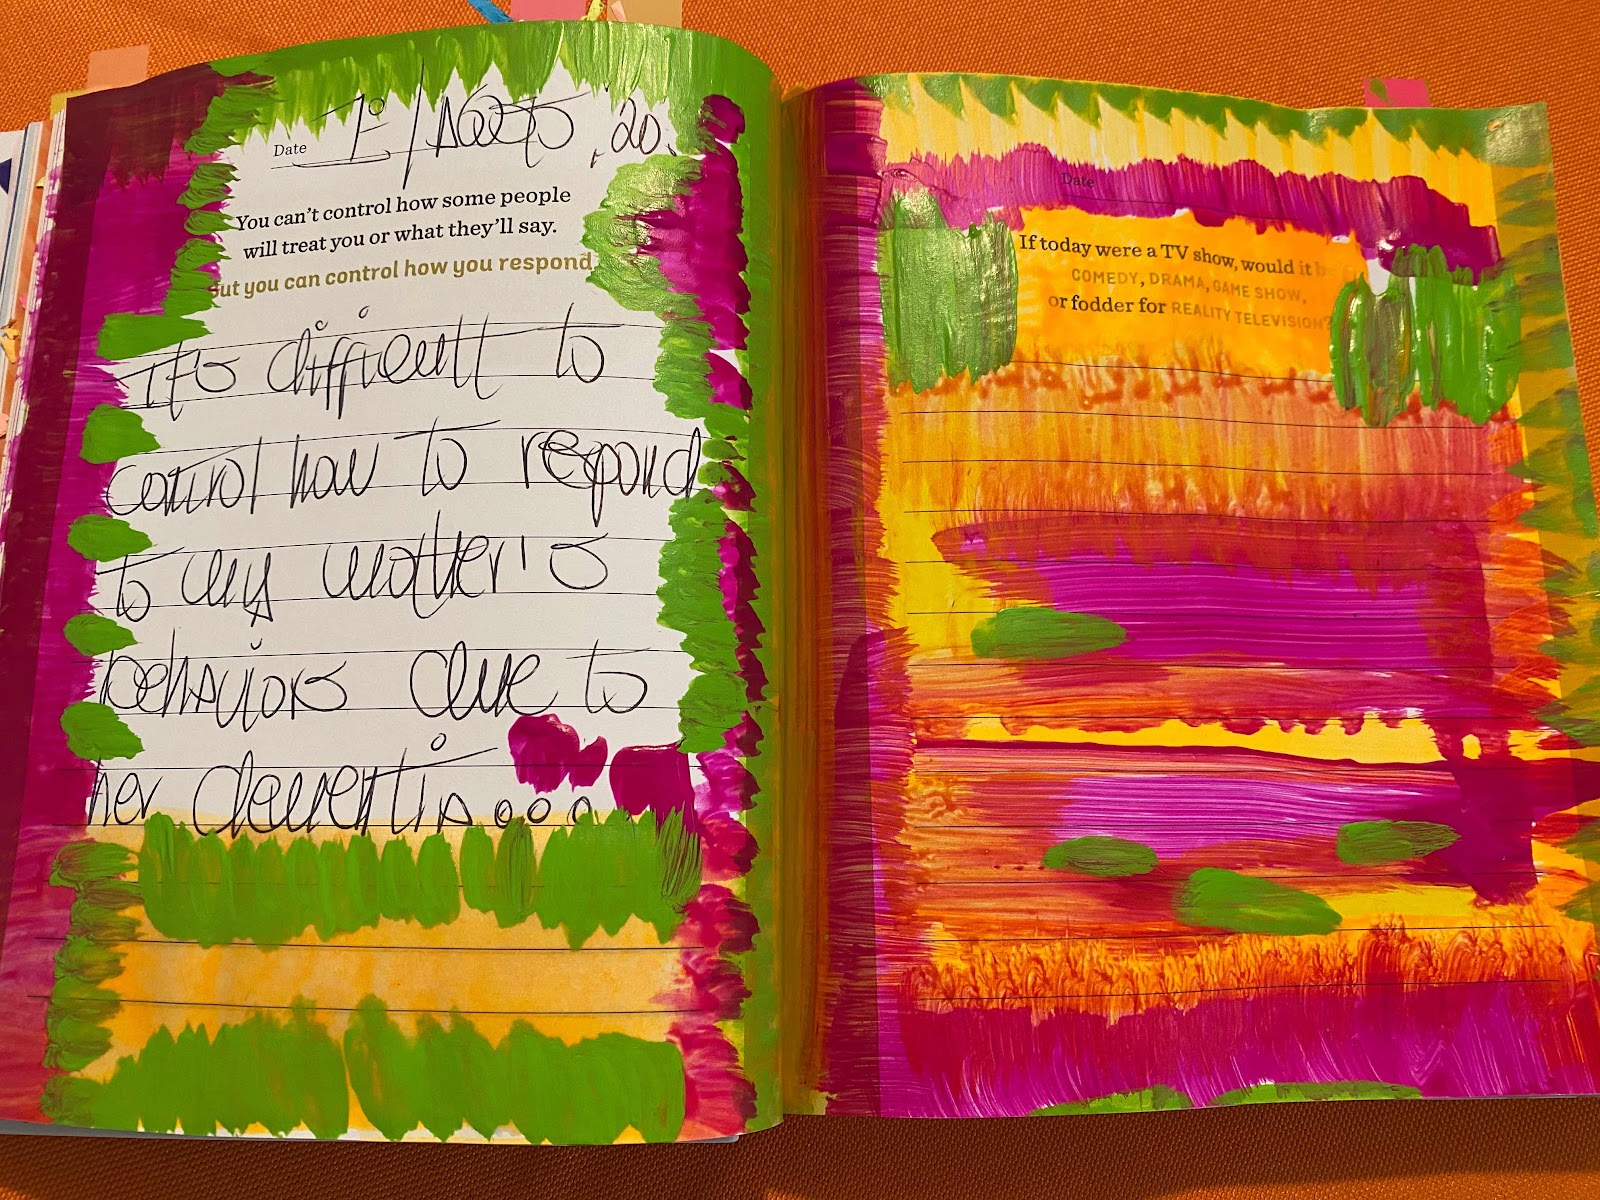 Date 1º / Agosto, 20.
You can't control how some people
will treat you or what they'll say.
But you can control how you respond
It's difficult to
control how to respond
to my mother's
behaviors due to
her dementia...
Date
If today were a TV show, would it be
COMEDY, DRAMA, GAME SHOW,
or fodder for REALITY TELEVISION?